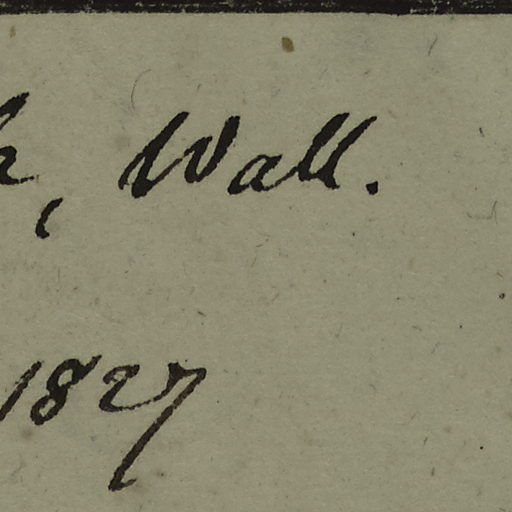 , Wall.
1827